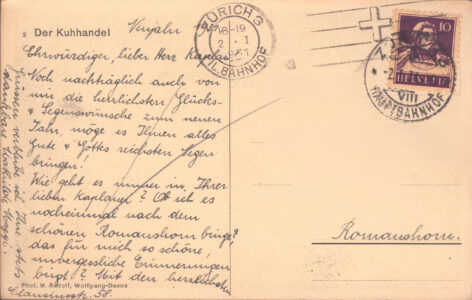 2 Der Kuhhandel
Neujahr 1931
Ehrwürdiger, lieber Herr Kaplan
Noch nachträglich auch von
mir die herzlichsten Glücks-
& Segenswünsche zum neuen
Jahr, möge es Ihnen alles
Gute & Gottes reichsten Segen
bringen!
Wie geht es immer in Ihrer
lieben Kaplanei? Ob ich es
nocheinmal nach dem
schönen Romanshorn bringe,
das für mich so schöne,
unvergessliche Erinnerungen
birgt? Mit den herzlichsten
Grüssen verbleibe ich Ihre stets
dankbare
Phot. M. Rudolf, Wolfgang-Davos
Clausiusstr. 58.
ZÜRICH 3
18-19
2. I
1931
FIL. BAHNHOF
10
HELVETIA
VIII
HAUPTBAHNHOF
Romanshorn.